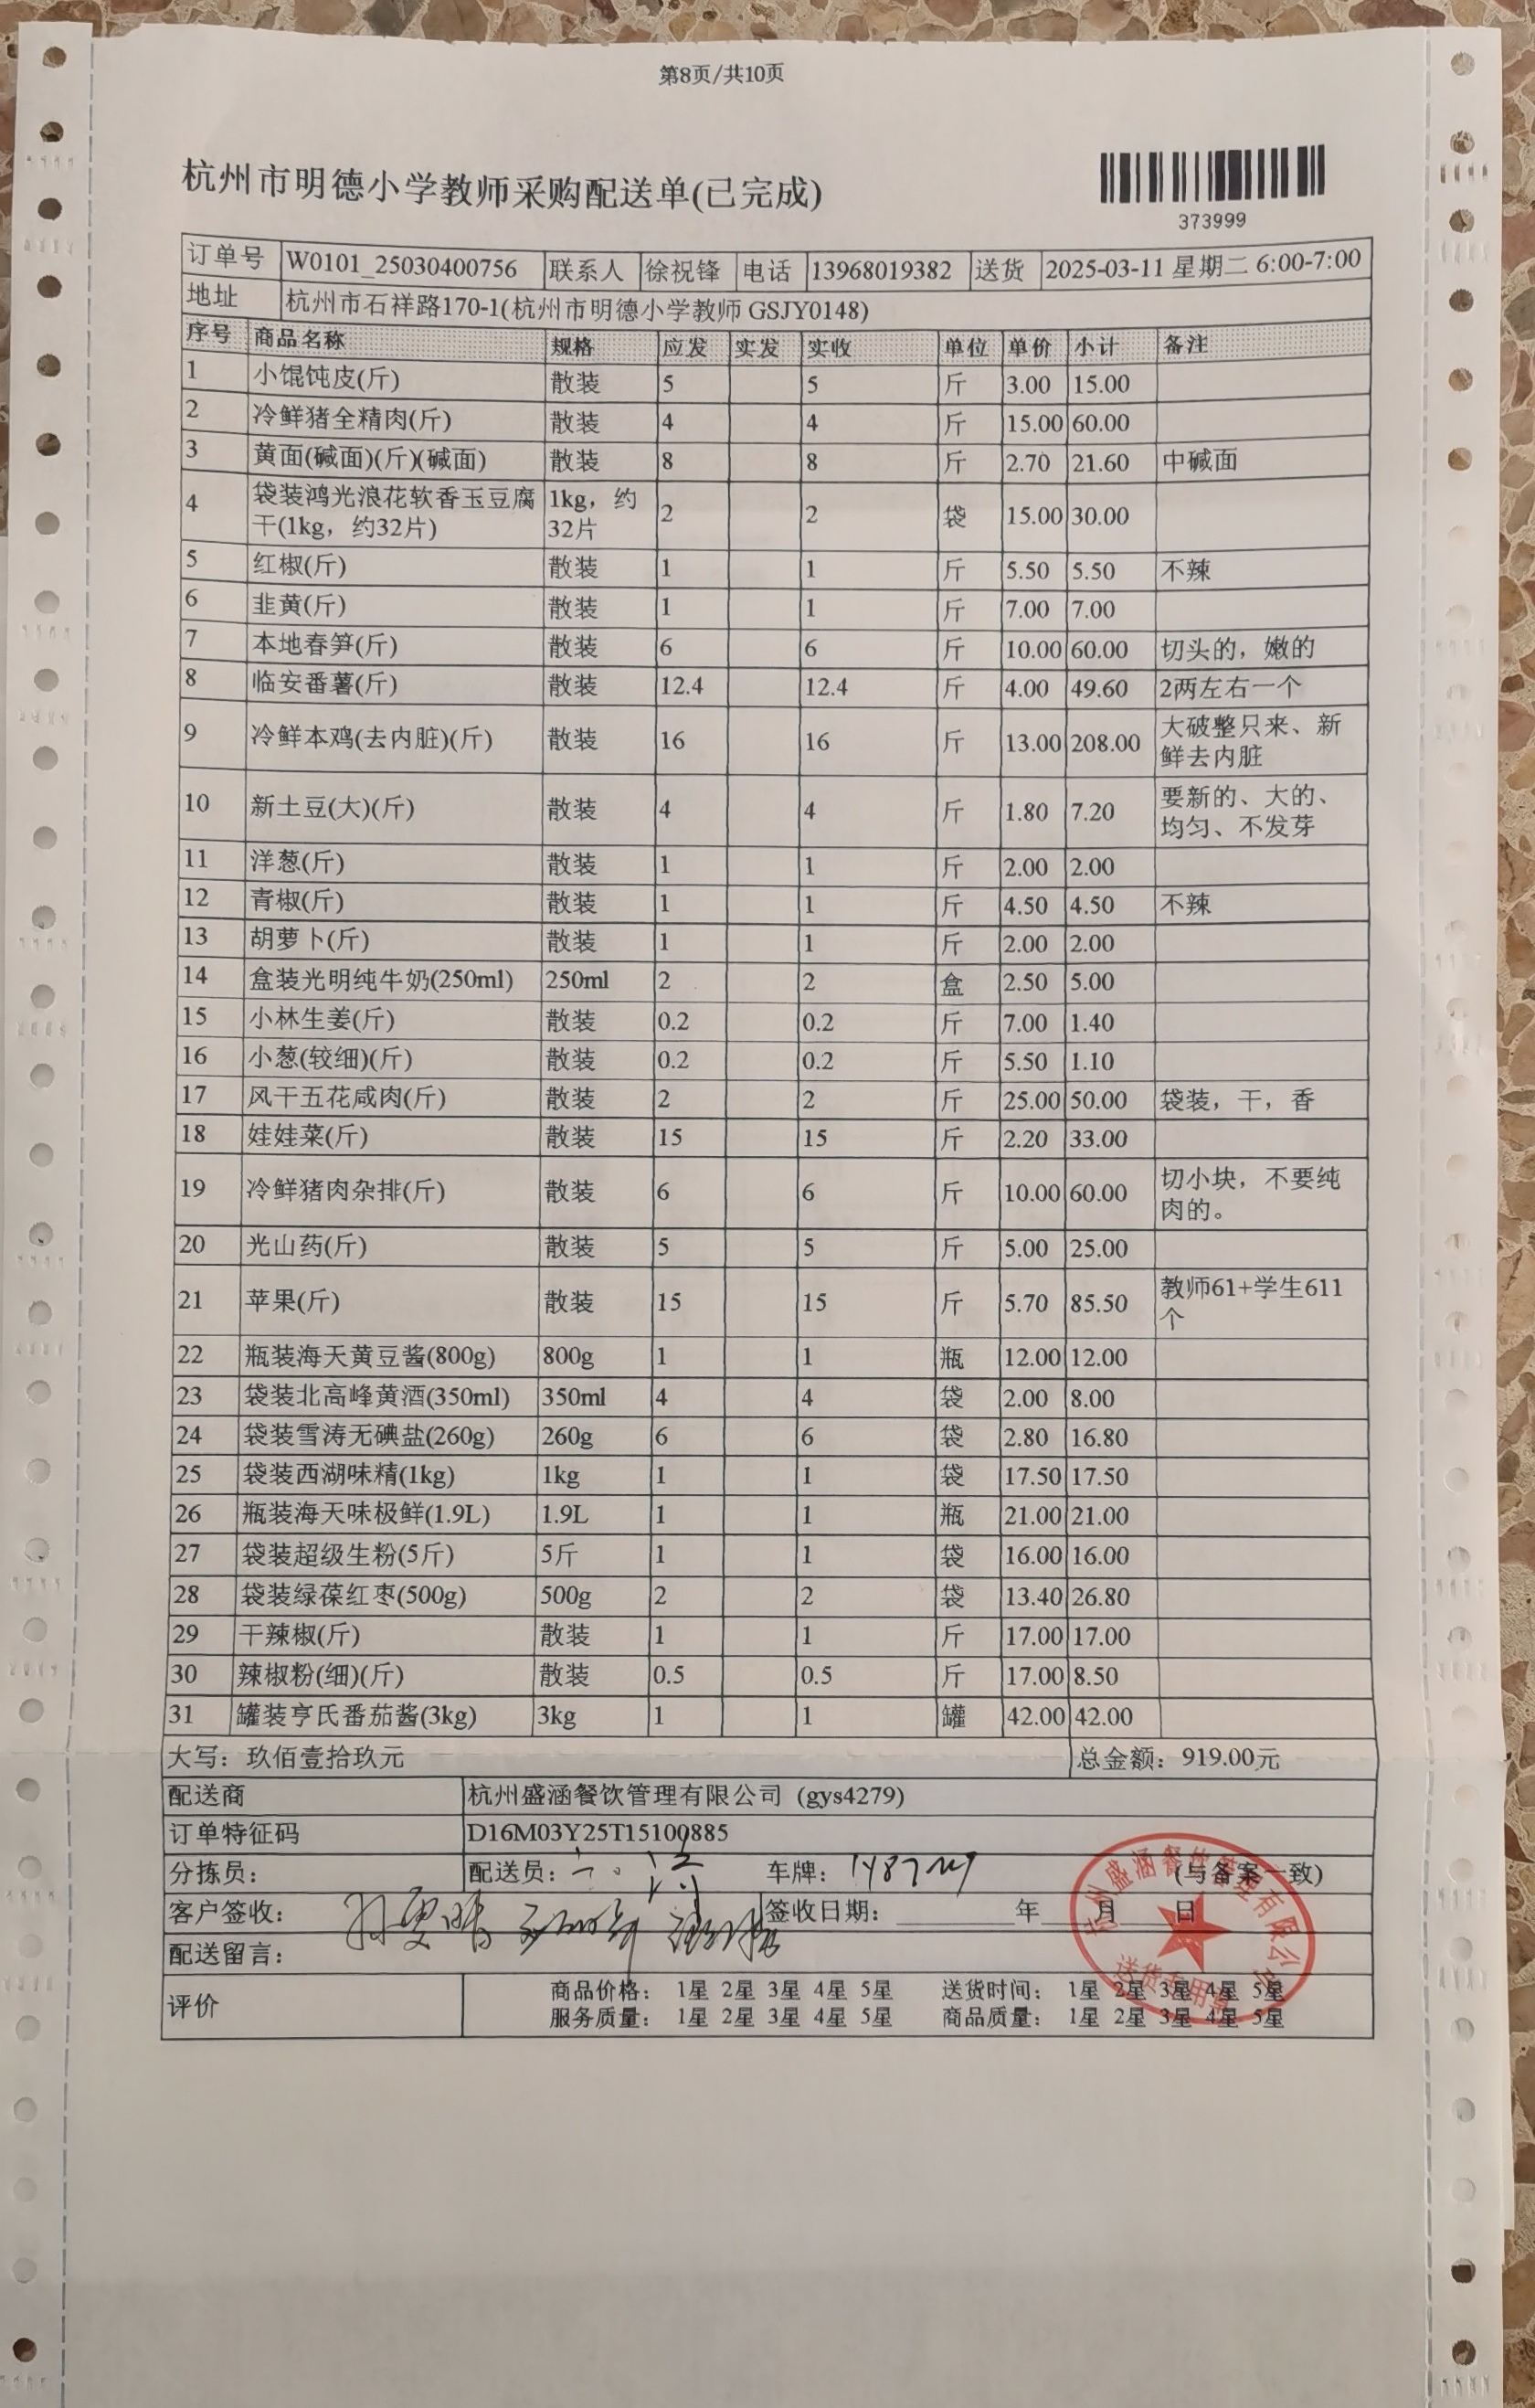 第8页/共10页
杭州市明德小学教师采购配送单(已完成)
373999
订单号 W0101_25030400756 联系人 徐祝锋 电话 13968019382 送货 2025-03-11 星期二 6:00-7:00
地址 杭州市石祥路170-1(杭州市明德小学教师 GSJY0148)
序号 商品名称 规格 应发 实发 实收 单位 单价 小计 备注
1 小馄饨皮(斤) 散装 5 5 斤 3.00 15.00
2 冷鲜猪全精肉(斤) 散装 4 4 斤 15.00 60.00
3 黄面(碱面)(斤)(碱面) 散装 8 8 斤 2.70 21.60 中碱面
4 袋装鸿光浪花软香玉豆腐干(1kg，约32片) 1kg，约32片 2 2 袋 15.00 30.00
5 红椒(斤) 散装 1 1 斤 5.50 5.50 不辣
6 韭黄(斤) 散装 1 1 斤 7.00 7.00
7 本地春笋(斤) 散装 6 6 斤 10.00 60.00 切头的，嫩的
8 临安番薯(斤) 散装 12.4 12.4 斤 4.00 49.60 2两左右一个
9 冷鲜本鸡(去内脏)(斤) 散装 16 16 斤 13.00 208.00 大破整只来、新鲜去内脏
10 新土豆(大)(斤) 散装 4 4 斤 1.80 7.20 要新的、大的、均匀、不发芽
11 洋葱(斤) 散装 1 1 斤 2.00 2.00
12 青椒(斤) 散装 1 1 斤 4.50 4.50 不辣
13 胡萝卜(斤) 散装 1 1 斤 2.00 2.00
14 盒装光明纯牛奶(250ml) 250ml 2 2 盒 2.50 5.00
15 小林生姜(斤) 散装 0.2 0.2 斤 7.00 1.40
16 小葱(较细)(斤) 散装 0.2 0.2 斤 5.50 1.10
17 风干五花咸肉(斤) 散装 2 2 斤 25.00 50.00 袋装，干，香
18 娃娃菜(斤) 散装 15 15 斤 2.20 33.00
19 冷鲜猪肉杂排(斤) 散装 6 6 斤 10.00 60.00 切小块，不要纯肉的。
20 光山药(斤) 散装 5 5 斤 5.00 25.00
21 苹果(斤) 散装 15 15 斤 5.70 85.50 教师61+学生611个
22 瓶装海天黄豆酱(800g) 800g 1 1 瓶 12.00 12.00
23 袋装北高峰黄酒(350ml) 350ml 4 4 袋 2.00 8.00
24 袋装雪涛无碘盐(260g) 260g 6 6 袋 2.80 16.80
25 袋装西湖味精(1kg) 1kg 1 1 袋 17.50 17.50
26 瓶装海天味极鲜(1.9L) 1.9L 1 1 瓶 21.00 21.00
27 袋装超级生粉(5斤) 5斤 1 1 袋 16.00 16.00
28 袋装绿葆红枣(500g) 500g 2 2 袋 13.40 26.80
29 干辣椒(斤) 散装 1 1 斤 17.00 17.00
30 辣椒粉(细)(斤) 散装 0.5 0.5 斤 17.00 8.50
31 罐装亨氏番茄酱(3kg) 3kg 1 1 罐 42.00 42.00
大写：玖佰壹拾玖元 总金额：919.00元
配送商 杭州盛涵餐饮管理有限公司 (gys4279)
订单特征码 D16M03Y25T15100885
分拣员： 配送员： 车牌： (与备案一致)
客户签收： 签收日期： 年 月 日
配送留言：
评价 商品价格： 1星 2星 3星 4星 5星 送货时间： 1星 2星 3星 4星 5星
服务质量： 1星 2星 3星 4星 5星 商品质量： 1星 2星 3星 4星 5星
杭州盛涵餐饮管理有限公司
送货专用章